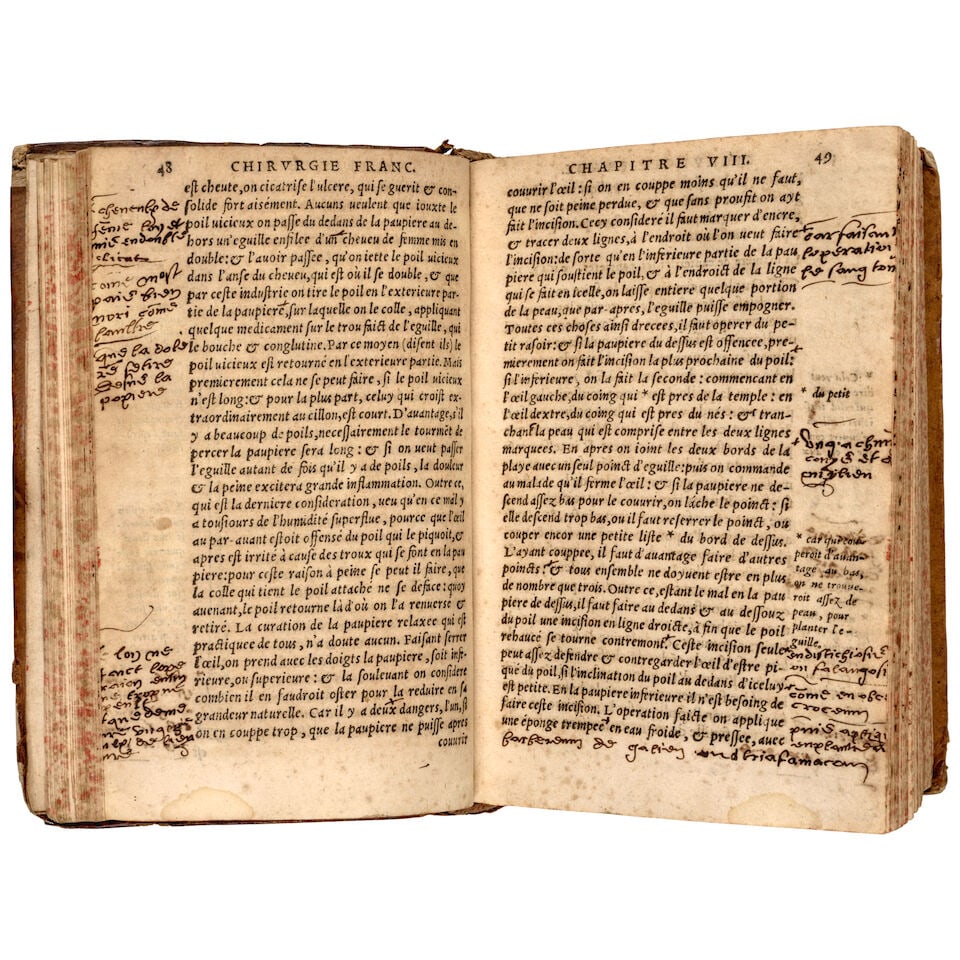 48
CHIRVRGIE FRANC.
est cheute, on cicatrise l'ulcere, qui se guerit & con-
solide fort aisément. Aucuns ueulent que iouxte le
poil vicieux on passe du dedans de la paupiere au de-
hors un'eguille enfilee d'un cheueu de femme mis en
double: & l'auoir passée, qu'on iette le poil vicieux
dans l'anse du cheueu, qui est où il se double, & que
par ceste industrie on tire le poil en l'exterieure par-
tie de la paupiere, sur laquelle on le colle, appliquant
quelque medicament sur le trou faict de l'eguille, qui
le bouche & conglutine. Par ce moyen (disent ils) le
poil vicieux est retourné en l'exterieure partie. Mais
premierement cela ne se peut faire, si le poil vicieux
n'est long: & pour la plus part, celuy qui croist ex-
traordinairement au cillon, est court. D'auantage, s'il
y a beaucoup de poils, necessairement le tourmēt de
percer la paupiere sera long: & si on veut passer
l'eguille autant de fois qu'il y a de poils, la douleur
& la peine excitera grande inflammation. Outre ce,
qui est la derniere consideration, ueu qu'en ce mal y
a tousiours de l'humidité superflue, pource que l'œil
au par-auant estoit offensé du poil qui le piquoit, &
apres est irrité à cause des troux qui se font en la pau
piere: pour ceste raison à peine se peut il faire, que
la colle qui tient le poil attaché ne se deface: quoy
auenant, le poil retourne là d'où on l'a renuersé &
retiré. La curation de la paupiere relaxee qui est
practiquee de tous, n'a doute aucun. Faisant serrer
l'œil, on prend auec les doigts la paupiere, soit infe-
rieure, ou superieure: & la souleuant on considere
combien il en faudroit oster pour la reduire en sa
grandeur naturelle. Car il y a deux dangers, l'un, si
on en couppe trop, que la paupiere ne puisse apres
couurir
que la dole
CHAPITRE VIII.
49
couurir l'œil: si on en couppe moins qu'il ne faut,
que ne soit peine perdue, & que sans proufit on ayt
fait l'incision. Cecy consideré il faut marquer d'encre,
& tracer deux lignes, à l'endroit où l'on ueut faire
l'incision: de sorte qu'en l'inferieure partie de la pau
piere qui soustient le poil, & à l'endroict de la ligne
qui se fait en icelle, on laisse entiere quelque portion
de la peau, que par-apres, l'eguille puisse empogner.
Toutes ces choses ainsi dreceés, il faut operer du pe-
tit rasoir: & si la paupiere du dessus est offencee, pre-
mierement on fait l'incision la plus prochaine du poil:
si l'inferieure, on la fait la seconde: commencant en
l'œil gauche, du coing qui * est pres de la temple: en
l'œil dextre, du coing qui est pres du nés: & tran-
chant la peau qui est comprise entre les deux lignes
marquees. En apres on ioint les deux bords de la
playe auec un seul poinct d'eguille: puis on commande
au malade qu'il ferme l'œil: & si la paupiere ne de-
scend assez bas pour le couurir, on lâche le poinct: si
elle descend trop bas, ou il faut reserrer le poinct, ou
couper encor une petite liste * du bord de dessus.
L'ayant couppee, il faut d'auantage faire d'autres
poincts: & tous ensemble ne doyuent estre en plus
de nombre que trois. Outre ce, estant le mal en la pau
piere de dessus, il faut faire au dedans & au dessouz
du poil une incision en ligne droicte, à fin que le poil
rehaucé se tourne contremont. Ceste incision seule
peut assez defendre & contregarder l'œil d'estre pi-
qué du poil, si l'inclination du poil au dedans d'iceluy
est petite. En la paupiere inferieure il n'est besoing de
faire ceste incision. L'operation faicte on applique
une éponge trempee en eau froide, & pressée, auec
* du petit
* car qui cou-
peroit d'auan-
tage au bas,
on ne trouue-
roit assez de
peau, pour
planter l'e-
guille.
de galien